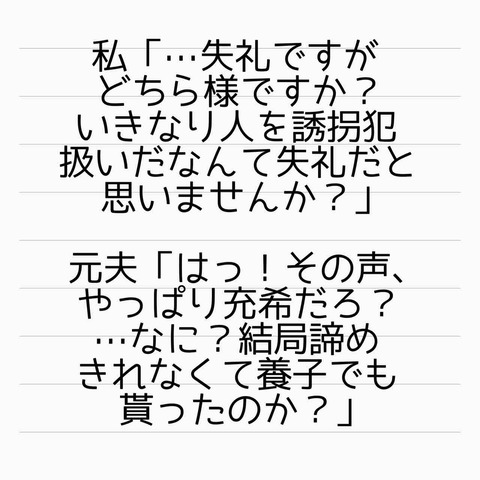 私「…失礼ですが
どちら様ですか？
いきなり人を誘拐犯
扱いだなんて失礼だと
思いませんか？」
元夫「はっ！その声、
やっぱり充希だろ？
…なに？結局諦め
きれなくて養子でも
貰ったのか？」